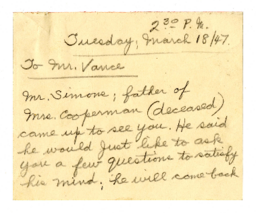 2³⁰ P.M.
Tuesday, March 18/47.
To Mr. Vance
Mr. Simone; father of
Mrs. Cooperman (deceased)
came up to see you. He said
he would just like to ask
you a few questions to satisfy
his mind; he will come back